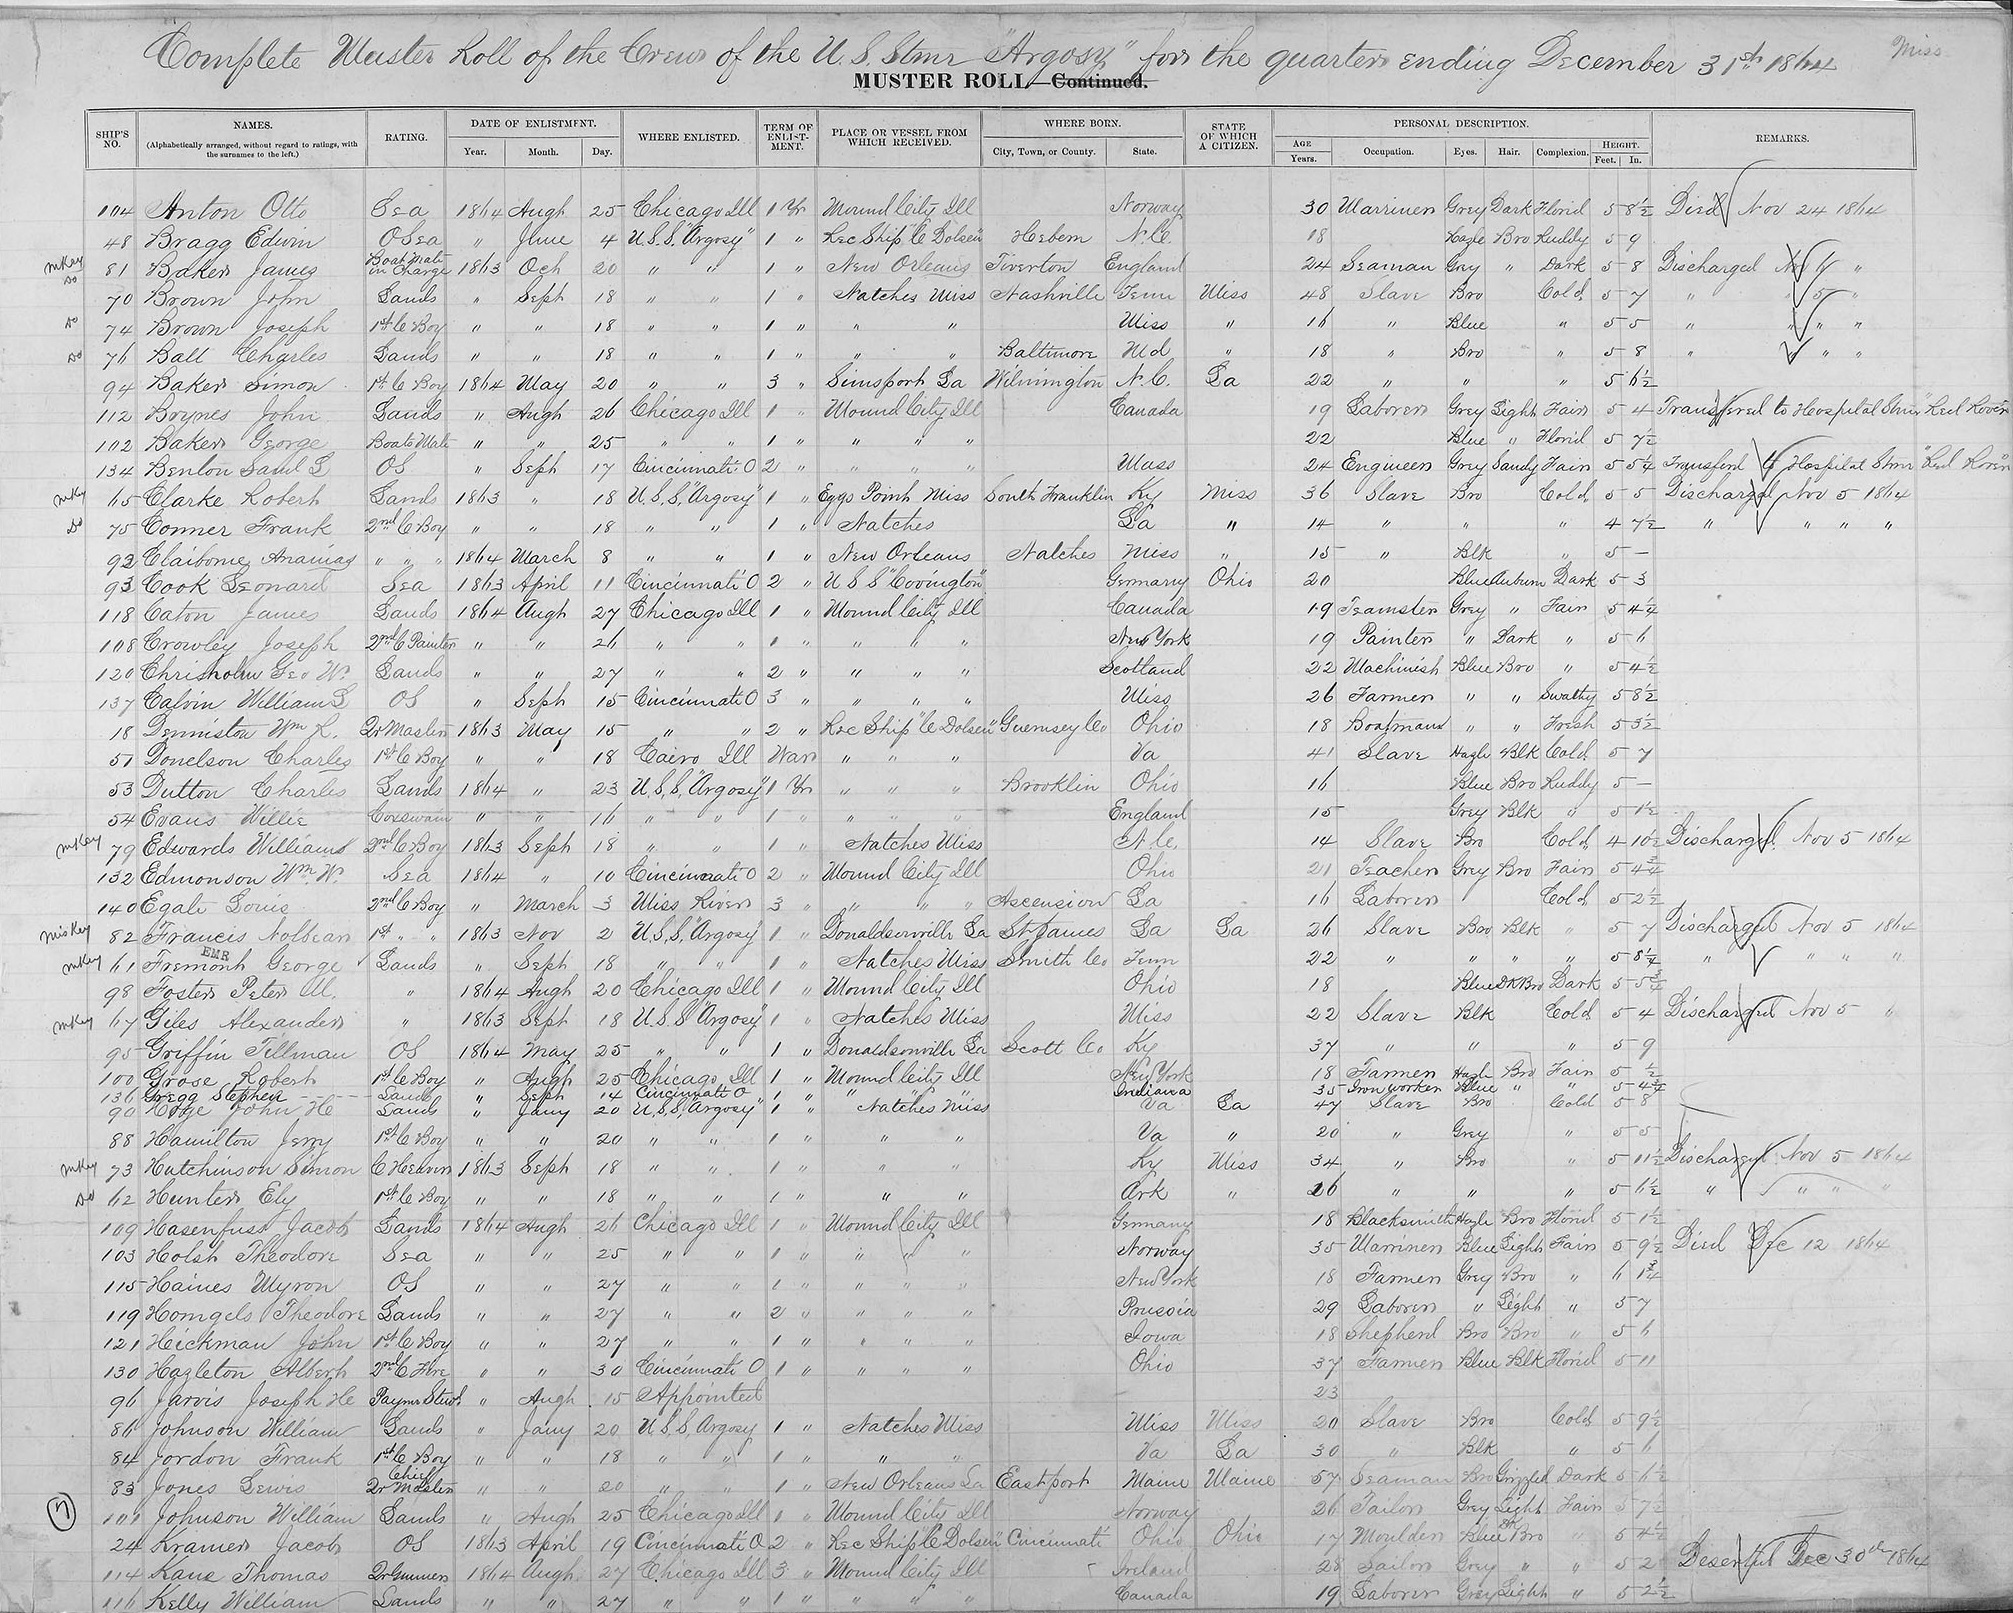 Complete Muster Roll of the Crew of the U.S. Stmr "Argosy" for the quarter ending December 31st 1864 Miss
MUSTER ROLL—Continued.
SHIP'S NO. NAMES. (Alphabetically arranged, without regard to ratings, with the surnames to the left.) RATING. DATE OF ENLISTMENT. Year. Month. Day. WHERE ENLISTED. TERM OF ENLISTMENT. PLACE OR VESSEL FROM WHICH RECEIVED. WHERE BORN. City, Town, or County. State. STATE OF WHICH A CITIZEN. PERSONAL DESCRIPTION. AGE Years. Occupation. Eyes. Hair. Complexion. HEIGHT. Feet. In. REMARKS.
104 Anton Otto Sea 1864 Augt 25 Chicago Ill 1 Yr Mound City Ill Norway 30 Marriner Grey Dark Florid 5 8½ Died Nov 24 1864
48 Bragg Edwin OSea " June 4 U.S.S. "Argosy" 1 " Rec Ship "C Dolsen" Hebern N.C. 18 Hazle Bro Ruddy 5 9
81 Baker James Boat Mate in Charge 1863 Oct 20 " " 1 " New Orleans Tiverton England 24 Seaman Grey " Dark 5 8 Discharged Nov "
70 Brown John Lands " Sept 18 " " 1 " Natches Miss Nashville Tenn Miss 48 Slave Bro Cold 5 7 " " 5 "
Do 74 Brown Joseph 1st C Boy " " 18 " " 1 " " " Miss " 16 " Blue " 5 5 " " " "
Do 76 Ball Charles Lands " " 18 " " 1 " " " Baltimore Md " 18 " Bro " 5 8 " " "
94 Baker Simon 1st C Boy 1864 May 20 " " 3 " Simsport La Wilmington N.C. La 22 " " " 5 6½
112 Brynes John Lands " Augt 26 Chicago Ill 1 " Mound City Ill Canada 19 Laborer Grey Light Fair 5 4 Transferred to Hospital Stmr "Red Rover"
102 Baker George Boats Mate " " 25 " " 1 " " " " 22 Blue " Florid 5 7½
134 Benton Saml L OS " Sept 17 Cincinnati O 2 " " " " Mass 24 Engineer Grey Sandy Fair 5 5¼ Transferd to Hospital Stmr "Red Rover"
65 Clarke Robert Lands 1863 " 18 U.S.S. "Argosy" 1 " Eggs Point Miss South Franklin Ky Miss 36 Slave Bro Cold 5 5 Discharged Nov 5 1864
Do 75 Conner Frank 2nd C Boy " " 18 " " 1 " Natches La " 14 " " " 4 7½ " " " "
92 Claiborne Ananias " " " 1864 March 8 " " 1 " New Orleans Natches Miss " 15 " Blk " 5 —
93 Cook Leonard Sea 1863 April 11 Cincinnati O 2 " U S S "Covington" Germany Ohio 20 Blue Auburn Dark 5 3
118 Caton James Lands 1864 Augt 27 Chicago Ill 1 " Mound City Ill Canada 19 Teamster Grey " Fair 5 4¼
108 Crowley Joseph 2nd C Painter " " 26 " " 1 " " " " New York 19 Painter " Dark " 5 6
120 Chrisholm Geo W. Lands " " 27 " " 2 " " " " Scotland 22 Machinist Blue Bro " 5 4½
137 Calvin William S OS " Sept 15 Cincinnati O 3 " " " " Miss 26 Farmer " " Swathy 5 8½
18 Denniston Wm R. Qr Master 1863 May 15 " " 2 " Rec Ship "C Dolsen" Guernsey Co Ohio 18 Boatmans " " Fresh 5 3½
51 Donelson Charles 1st C Boy " " 18 Cairo Ill War " " " Va 41 Slave Hazle Blk Cold 5 7
53 Dutton Charles Lands 1864 " 23 U.S.S. "Argosy" 1 Yr " " " Brooklin Ohio 16 Blue Bro Ruddy 5 —
54 Evans Willie Coxswain " " 16 " " 1 " " " " England 15 Grey Blk " 5 1½
79 Edwards Williams 2nd C Boy 1863 Sept 18 " " 1 " Natches Miss N.C. 14 Slave Bro Cold 4 10½ Discharged Nov 5 1864
132 Edmonson Wm W. Sea 1864 " 10 Cincinnati O 2 " Mound City Ill Ohio 21 Teacher Grey Bro Fair 5 4¾
140 Egale Louis 2nd C Boy " March 3 Miss River 3 " " " " Ascension La 16 Laborer Cold 5 2½
82 Francis Nolbean 1st " " 1863 Nov 2 U.S.S. "Argosy" 1 " Donaldsonville La St James La La 26 Slave Bro Blk " 5 7 Discharged Nov 5 1864
EMR
61 Fremont George Lands " Sept 18 " " 1 " Natches Miss Smith Co Tenn 22 " " " " 5 8¼ " " " "
98 Foster Peter M. " 1864 Augt 20 Chicago Ill 1 " Mound City Ill Ohio 18 Blue DK Bro Dark 5 5¾
67 Giles Alexander " 1863 Sept 18 U.S.S "Argosy" 1 " Natches Miss Miss 22 Slave Blk Cold 5 4 Discharged Nov 5 "
95 Griffin Tillman OS 1864 May 25 " " 1 " Donaldsonville La Scott Co Ky 37 " " " 5 9
100 Grose Robert 1st C Boy " Augt 25 Chicago Ill 1 " Mound City Ill New York 18 Farmer Hazle Bro Fair 5 ½
136 Gregg Stephen Lands " Sept 14 Cincinnati O 1 " " " Indiana 35 Iron worker Blue " " 5 4½
90 Hoge John H Lands " Jany 20 U.S.S. "Argosy" 1 " Natches Miss Va La 47 Slave Bro Cold 5 8
88 Hamilton Jerry 1st C Boy " " 20 " " 1 " " " Va " 20 " Grey " 5 5
73 Hutchinson Simon C Heaver 1863 Sept 18 " " 1 " " " Ky Miss 34 " Bro " 5 11½ Discharged Nov 5 1864
Do 62 Hunter Ely 1st C Boy " " 18 " " 1 " " " Ark " 26 " " " 5 6½ " " " "
109 Hasenfust Jacob Lands 1864 Augt 26 Chicago Ill 1 " Mound City Ill Germany 18 Blacksmith Hazle Bro Florid 5 1½
103 Holst Theodore Sea " " 25 " " 1 " " " " Norway 35 Marriner Blue Light Fair 5 9½ Died Dec 12 1864
115 Haines Myron OS " " 27 " " 1 " " " " New York 18 Farmer Grey Bro " 6 1¾
119 Homgels Theodore Lands " " 27 " " 2 " " " " Prussia 29 Laborer " Light " 5 7
121 Hickman John 1st C Boy " " 27 " " 1 " " " " Iowa 18 Shepherd Bro Bro " 5 6
130 Hazleton Albert 2nd C Fire " " 30 Cincinnati O 1 " " " " Ohio 37 Farmer Blue Blk Florid 5 11
96 Jarvis Joseph H Paymr Stewd " Augt 15 Appointed 23
86 Johnson William Lands " Jany 20 U.S.S. Argosy 1 " Natches Miss Miss Miss 20 Slave Bro Cold 5 9½
84 Jordon Frank 1st C Boy " " 18 " " 1 " " " Va La 30 " Blk " 5 6
83 Jones Lewis Chief Qr Master " " 20 " " 1 " New Orleans La Eastport Maine Maine 57 Seaman Bro Grizzled Dark 5 6½
101 Johnson William Lands " Augt 25 Chicago Ill 1 " Mound City Ill Norway 26 Tailor Grey Light Fair 5 7½
24 Kramer Jacob OS 1863 April 19 Cincinnati O 2 " Rec Ship "C Dolsen" Cincinnati Ohio Ohio 17 Moulder Blue Dk Bro " 5 4½
114 Kane Thomas Qr Gunner 1864 Augt 27 Chicago Ill 3 " Mound City Ill Ireland 28 Sailor Grey " " 5 2 Deserted Dec 30th 1864
116 Kelly William Lands " " 27 " " 1 " " " " Canada 19 Laborer Grey Light " 5 2½
7